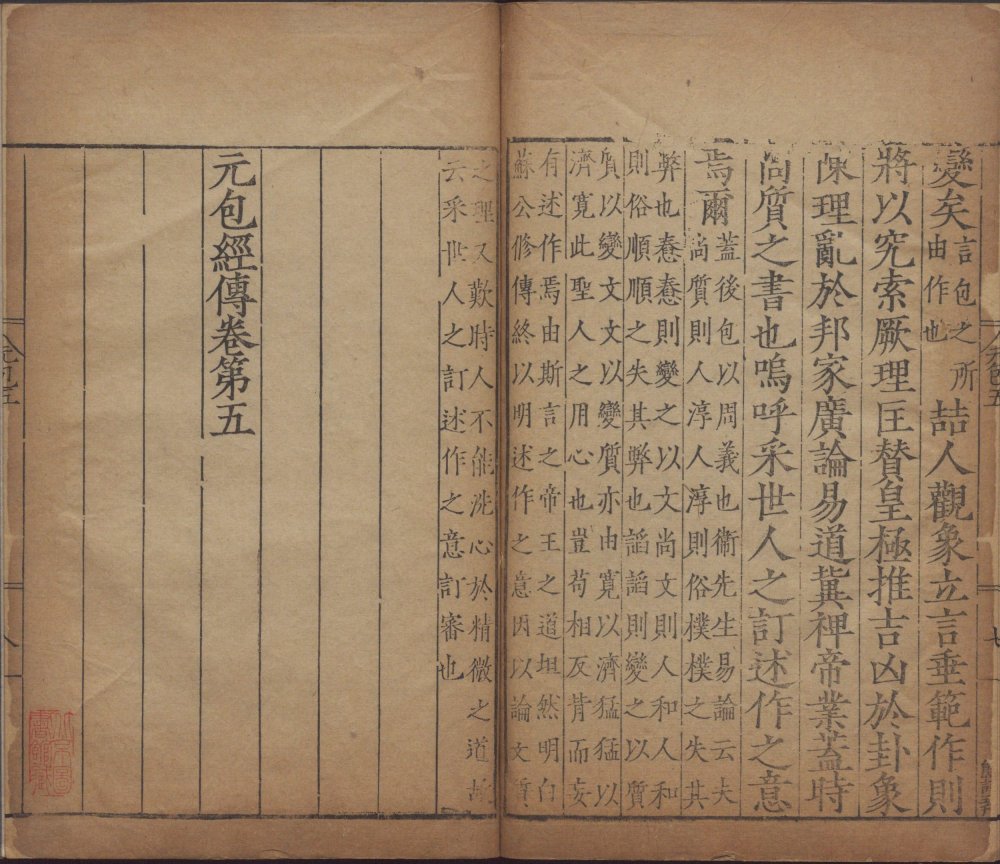 變矣言包之所由作也喆人觀象立言垂範作則
將以究索厥理匡贊皇極推吉凶於卦象
陳理亂於邦家廣論易道冀裨帝業蓋時
尚質之書也嗚呼采世人之訂述作之意
焉爾蓋後包以周義也衞先生易論云夫
尚質則人淳人淳則俗樸樸之失其
弊也惷惷則變之以文尚文則人和人和
則俗順順之失其弊也謟謟則變之以質
質以變文文以變質亦由寬以濟猛猛以
濟寬此聖人之用心也豈苟相反背而妄
有述作焉由斯言之帝王之道坦然明白
蘇公修傳終以明述作之意因以論文質
之理又歎時人不能洗心於精微之道故
云采世人之訂述作之意訂審也
元包經傳卷第五